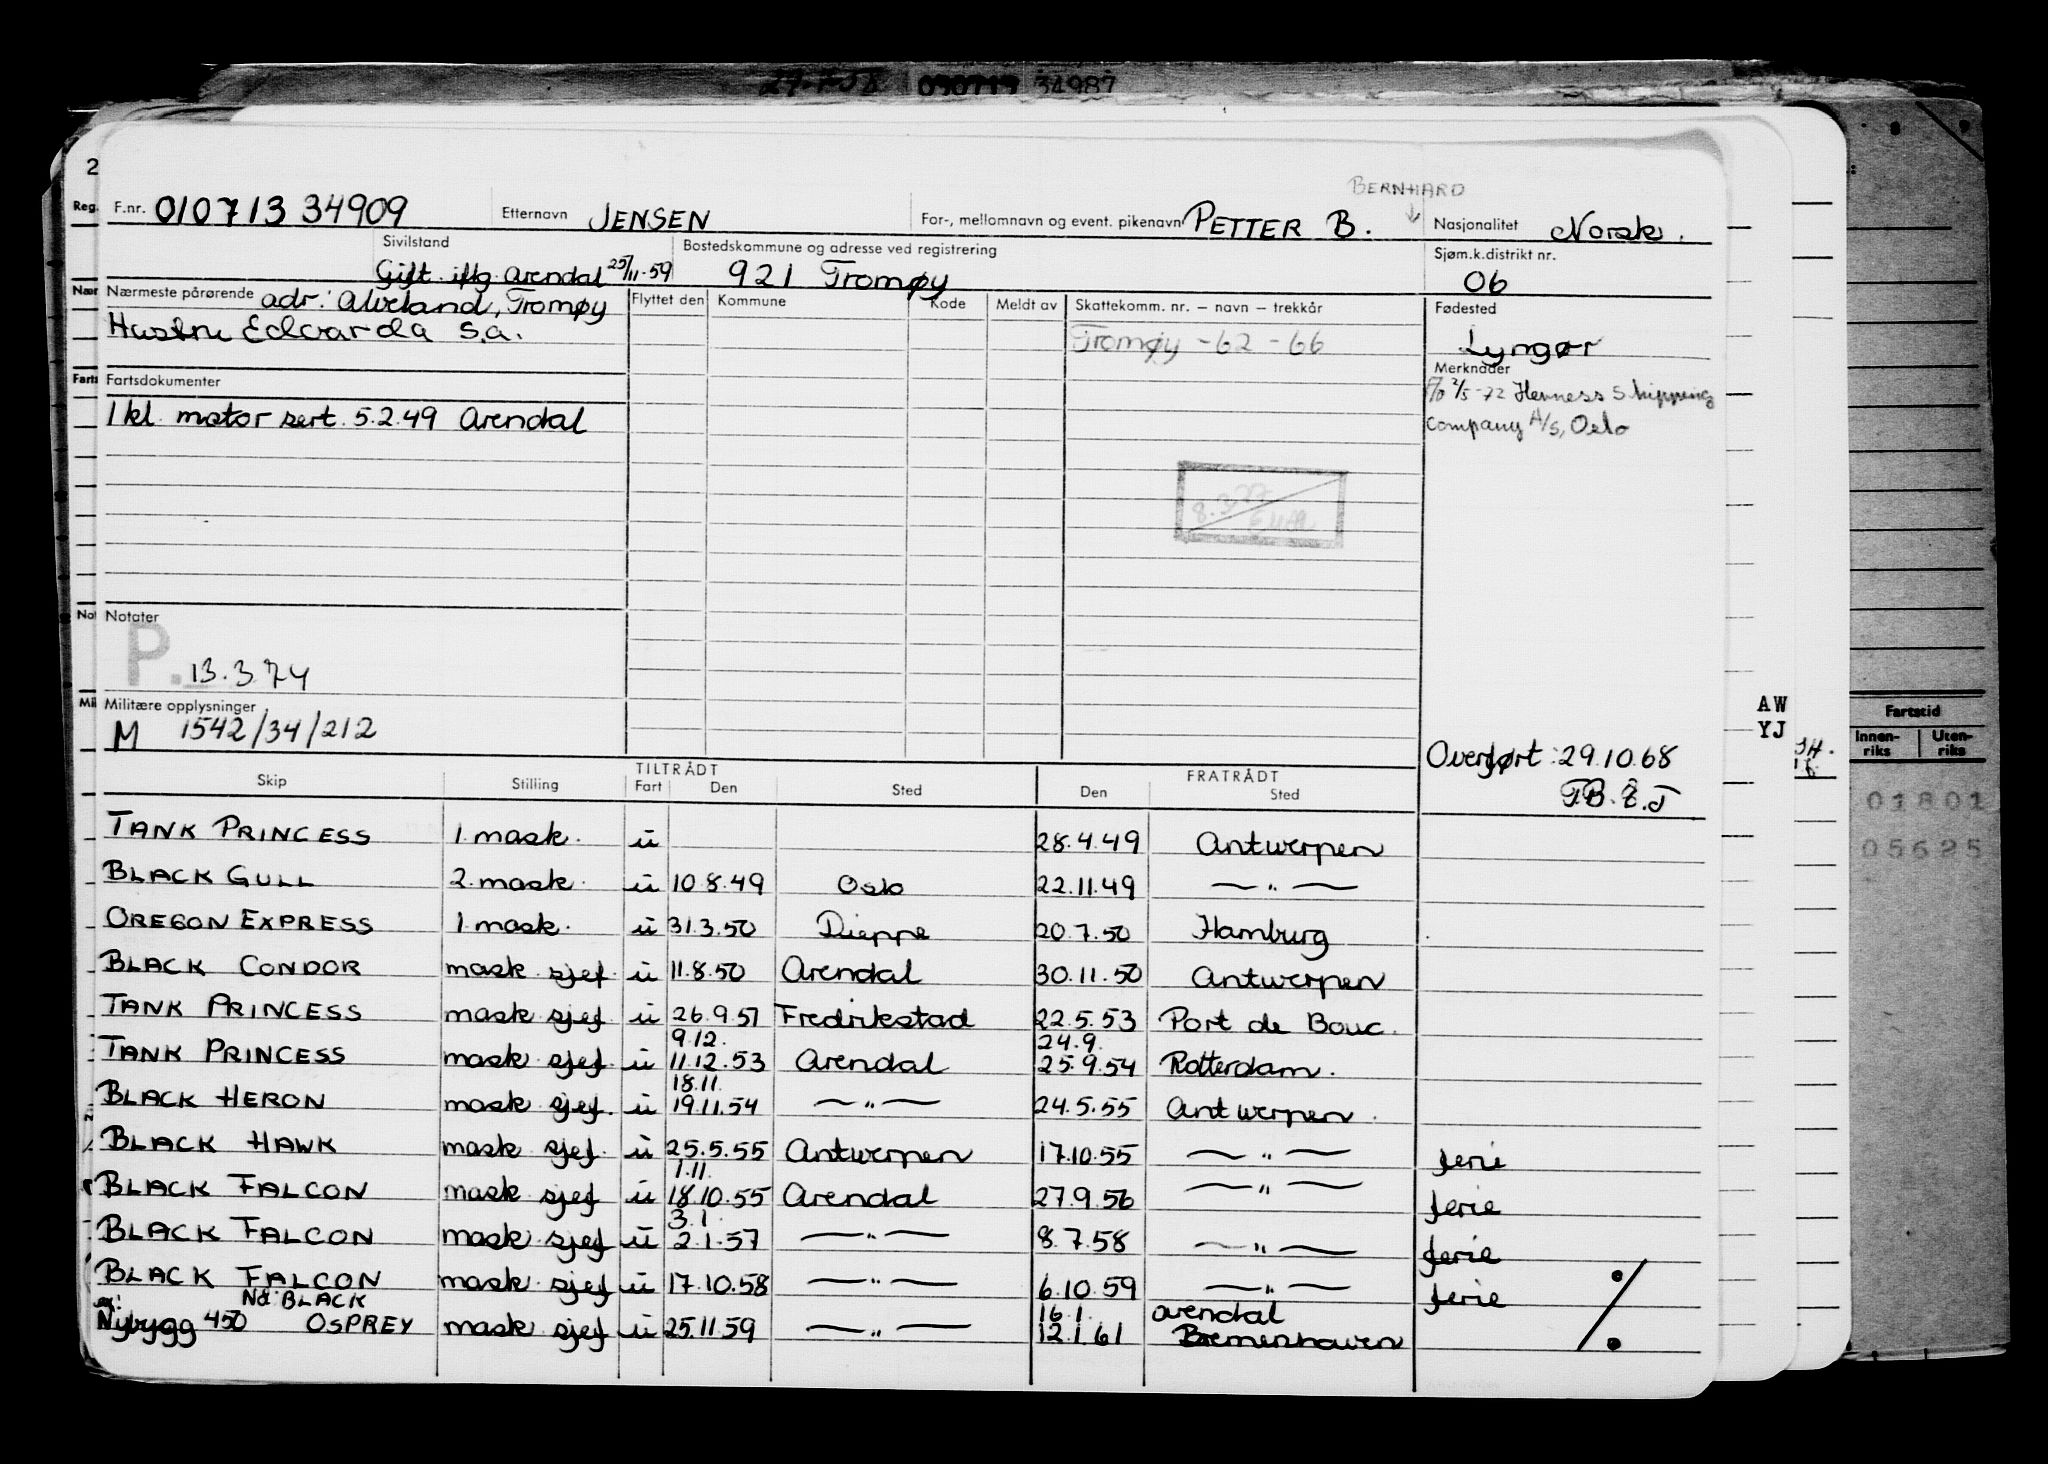 030713 34987
2
Reg. F.nr. 010713 34909 Etternavn JENSEN For-, mellomnavn og event. pikenavn PETTER B. BERNHARD Nasjonalitet Norsk.
Sivilstand Gift iflg. Arendal 25/11-59 Bostedskommune og adresse ved registrering 921 Tromøy Sjøm.k.distrikt nr. 06
Nær Nærmeste pårørende adr: Alveland, Tromøy Flyttet den Kommune Kode Meldt av Skattekomm. nr. – navn – trekkår Fødested
Hustru Edvarda s.a. Tromøy -62 -66 Lyngør
Farts Fartsdokumenter Merknader
1 kl. motor sert. 5.2.49 Arendal
P/O 2/5-72 Henness Shipping
Company A/S, Oslo
8.3.77
Not Notater
P. 13.3.74
Mil Militære opplysninger
M 1542/34/212
AW
YJ
Fartstid
Innen-riks Uten-riks
01801
05625
Overført: 29.10.68
Skip Stilling TILTRÅDT Fart Den Sted FRATRÅDT Den Sted
TANK PRINCESS 1. mask. u 28.4.49 Antwerpen
BLACK GULL 2. mask. u 10.8.49 Oslo 22.11.49 — " —
OREGON EXPRESS 1. mask. u 31.3.50 Dieppe 20.7.50 Hamburg
BLACK CONDOR mask sjef u 11.8.50 Arendal 30.11.50 Antwerpen
TANK PRINCESS mask sjef u 26.9.51 Fredrikstad 22.5.53 Port de Bouc.
9.12. 24.9.
TANK PRINCESS mask sjef u 11.12.53 Arendal 25.9.54 Rotterdam.
18.11.
BLACK HERON mask sjef. u 19.11.54 — " — 24.5.55 Antwerpen.
BLACK HAWK mask sjef. u 25.5.55 Antwerpen 17.10.55 — " — ferie
1.11.
BLACK FALCON mask sjef u 18.10.55 Arendal 27.9.56 — " — ferie
3.1.
BLACK FALCON mask sjef u 2.1.57 — " — 8.7.58 — " — ferie
BLACK FALCON mask sjef u 17.10.58 — " — 6.10.59 — " — ferie
ex: Nå: BLACK 16.1. Arendal
Nybygg 450 OSPREY mask sjef u 25.11.59 — " — 12.1.61 Bremenhaven